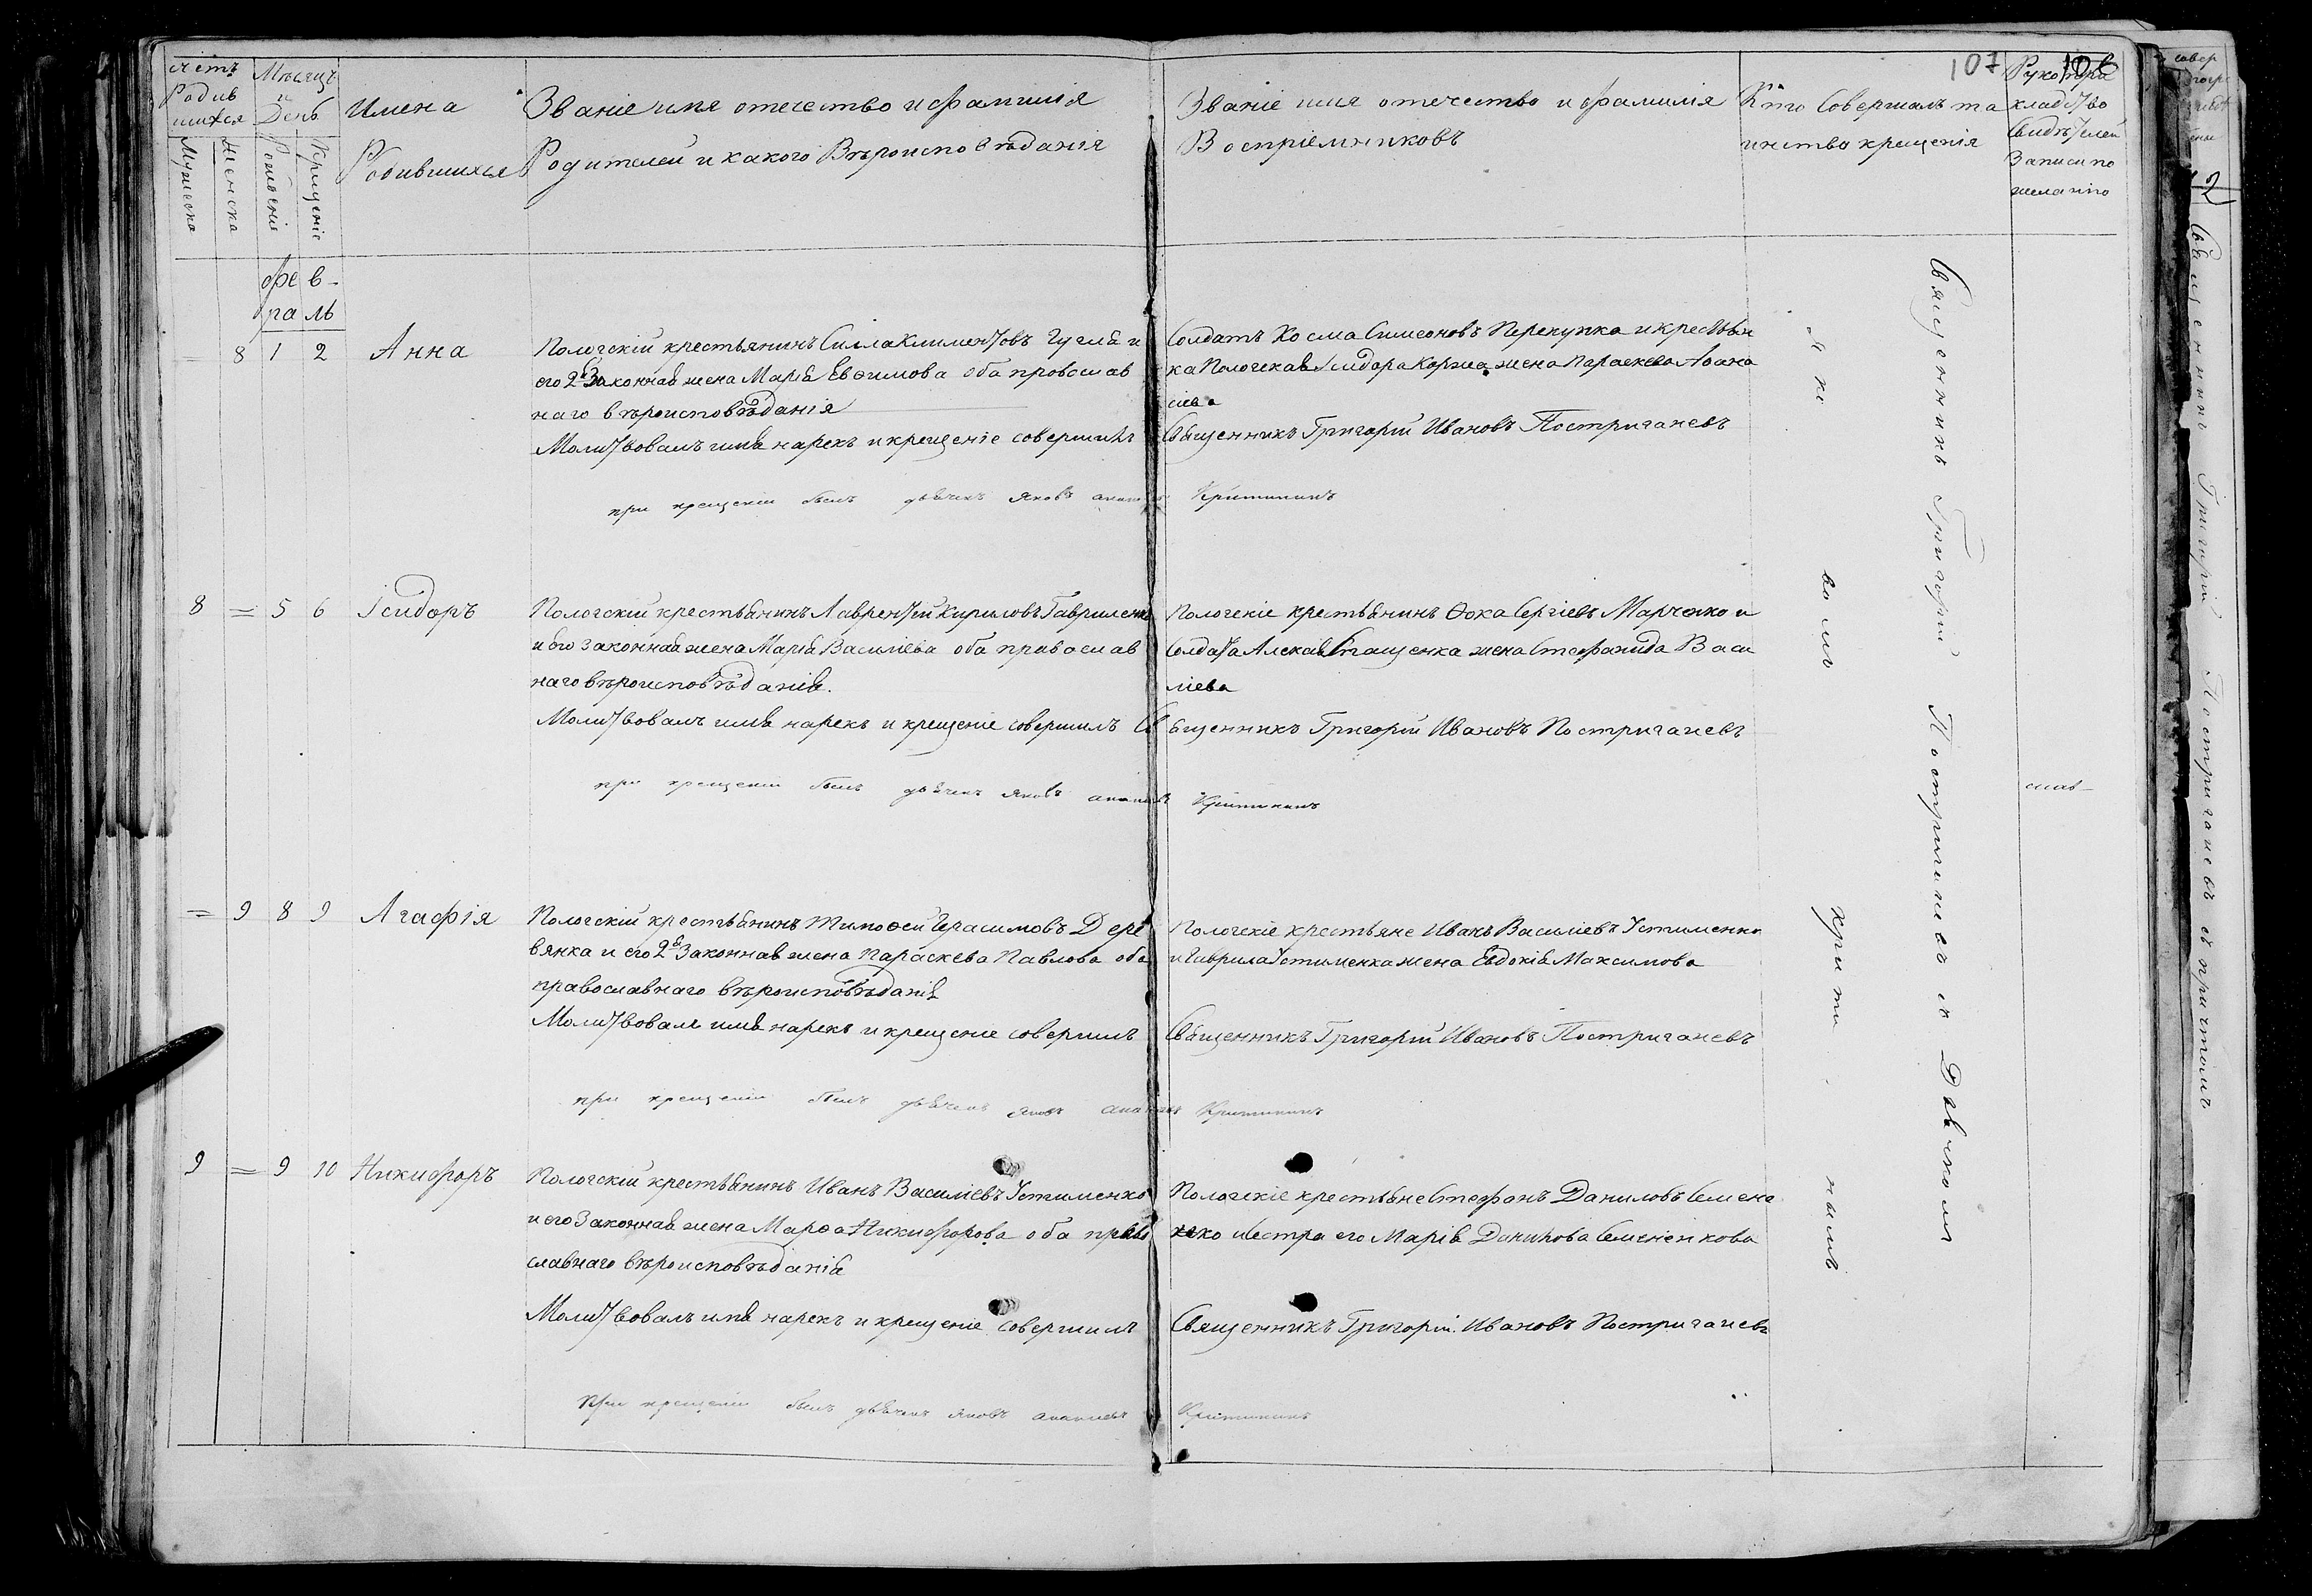 107
счетъ Родив шихся
Мѣсяцъ и День
Имена Родившихся
Званіе имя отечество и фамилія
Родителей и какого Вѣроисповѣданія
Званіе имя отечество и фамилія
Воспріемниковъ
Кто Совершалъ та
инство крещенія
Рукопри
кладство
Свидѣтелей
Записи по
желанію
Мужеска
Женска
Рожденія
Крещеніе
фев-
раль
8 1 2 Анна
Пологскій крестьянинъ Силла Климентовъ и
его 2я Законная жена Марія Евѳимова оба православ
наго вѣроисповѣданія
Молитвовалъ имя нарекъ и крещеніе совершилъ
при крещеніи былъ дьячекъ Яковъ
Солдатъ Косма Симеоновъ Перекупка и крестьян
ка Пологская Ісидора Коржа жена Параскева Аѳана
сіева
Священникъ Григорій Ивановъ Постриганевъ
8 = 5 6 Ісидоръ
Пологскій крестьянинъ Лаврентій Кириловъ Гавриленко
и его законная жена Марія Василіева оба православ
наго вѣроисповѣданія.
Молитвовалъ имя нарекъ и крещеніе совершилъ Св
при крещеніи былъ дьячекъ Яковъ
Пологскіе крестьянинъ Ѳока Сергіевъ Марченко и
Солдата жена Стефанида Васи
ліева
ященникъ Григорій Ивановъ Постриганевъ
= 9 8 9 Агафія
Пологскій крестьянинъ Тимоѳей Герасимовъ Дере
вянка и его 2я Законная жена Параскева Павлова оба
православнаго вѣроисповѣданія
Молитвовалъ имя нарекъ и крещеніе совершилъ
при крещеніи былъ дьячекъ Яковъ
Пологскіе крестьяне Иванъ Василіевъ Устименко
и Гаврила Устименка жена Евдокія Максимова
Священникъ Григорій Ивановъ Постриганевъ
9 = 9 10 Никифоръ
Пологскій крестьянинъ Иванъ Василіевъ Устименко
и его Законная жена Марѳа Никифорова оба право
славнаго вѣроисповѣданія
Молитвовалъ имя нарекъ и крещеніе совершилъ
При крещеніи былъ дьячекъ Яковъ Ананіевъ
Пологскіе крестьяне Стефанъ Даниловъ Семене
нко и сестра его Марія Данилова Семененкова
Священникъ Григорій Ивановъ Постриганевъ
Священникъ Григорій Постриганевъ съ Дьячкомъ